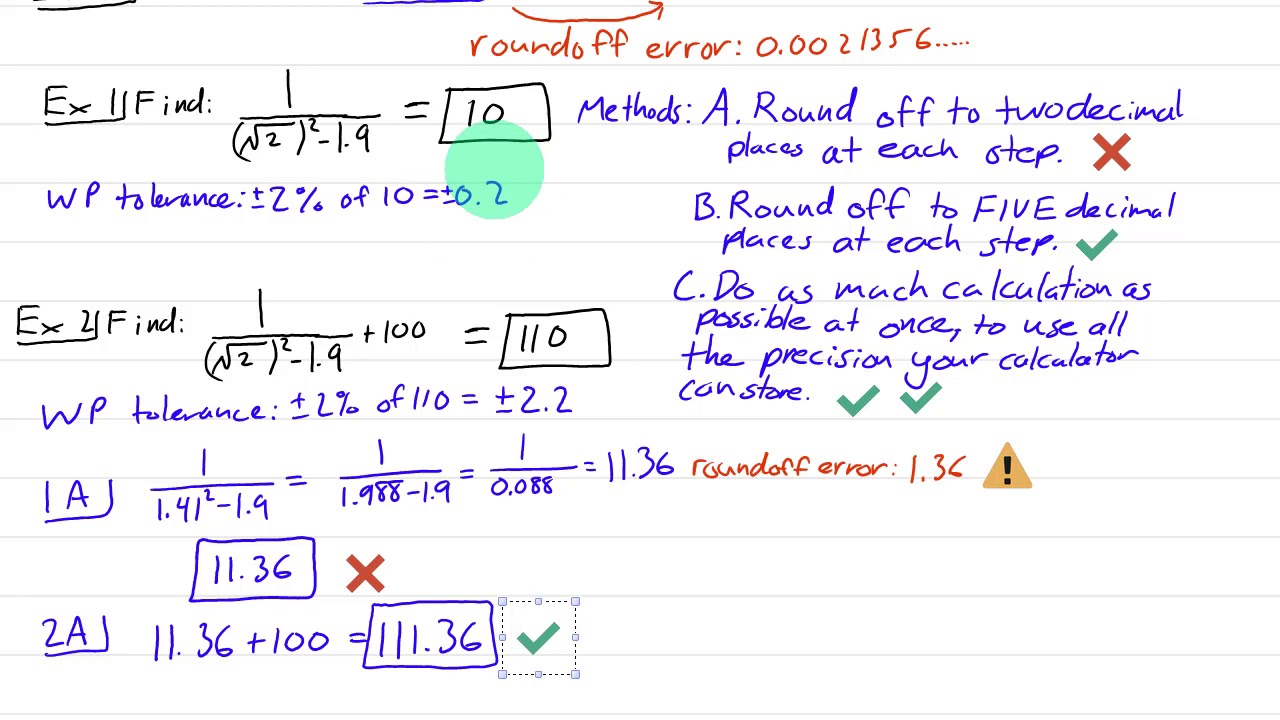 roundoff error: 0.0021356.....
Ex 1| Find: 1/((√2)² - 1.9) = 10
Methods: A. Round off to two decimal
places at each step. ❌
WP tolerance: ±2% of 10 = ±0.2
B. Round off to FIVE decimal
places at each step. ✔
C. Do as much calculation as
possible at once, to use all
the precision your calculator
can store. ✔ ✔
Ex 2| Find: 1/((√2)² - 1.9) + 100 = 110
WP tolerance: ±2% of 110 = ±2.2
1A| 1/(1.41² - 1.9) = 1/(1.988 - 1.9) = 1/0.088 = 11.36 roundoff error: 1.36 ⚠
11.36 ❌
2A| 11.36 + 100 = 111.36 ✔